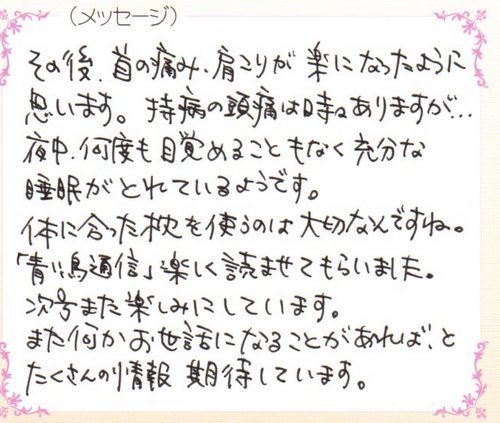 （メッセージ）
その後、首の痛み、肩こりが 楽になったように
思います。 持病の頭痛は時々ありますが…
夜中、何度も目覚めることもなく充分な
睡眠がとれているようです。
体に合った枕を使うのは大切なんですね。
「青い鳥通信」楽しく読ませてもらいました。
次号また楽しみにしています。
また何かお世話になることがあれば、と
たくさんの情報 期待しています。